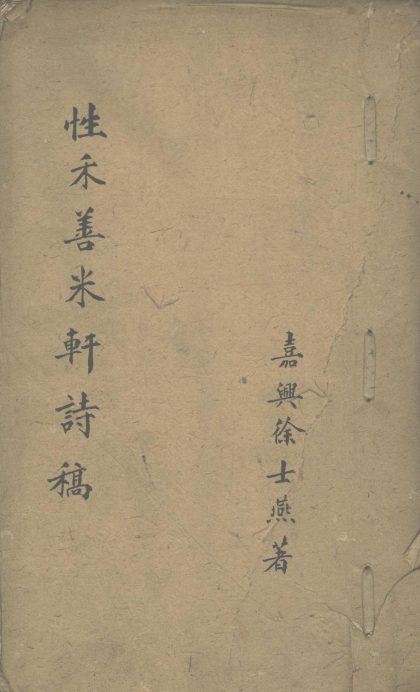 嘉興徐士燕著
性禾善米軒詩稿